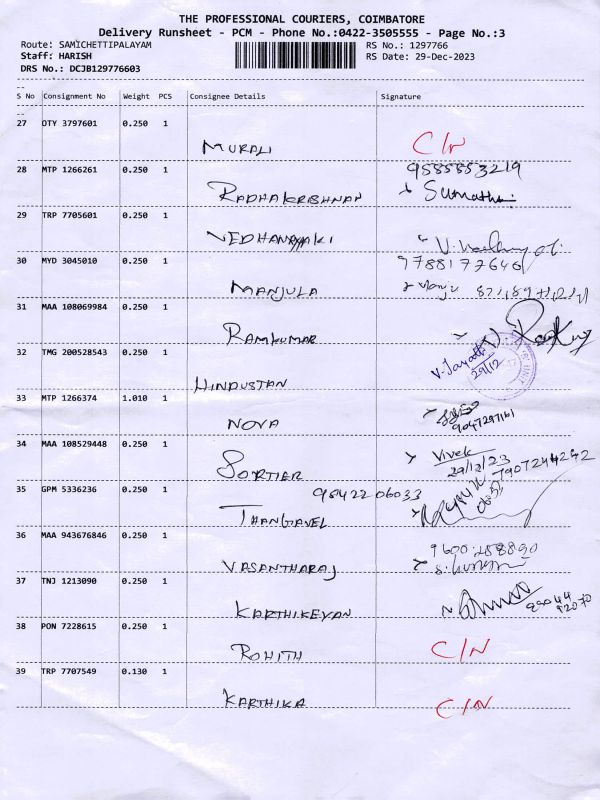 THE PROFESSIONAL COURIERS, COIMBATORE
Delivery Runsheet - PCM - Phone No.:0422-3505555 - Page No.:3
Route: SAMICHETTIPALAYAM RS No.: 1297766
Staff: HARISH RS Date: 29-Dec-2023
DRS No.: DCJB129776603
S No Consignment No Weight PCS Consignee Details Signature
27 OTY 3797601 0.250 1
MURALI C/N
28 MTP 1266261 0.250 1 9585553219
RADHAKRISHNAN Sumathi
29 TRP 7705601 0.250 1
VEDHANAYAKI
30 MYD 3045010 0.250 1 9788177646
MANJULA
31 MAA 108069984 0.250 1
RAMKUMAR
32 TMG 200528543 0.250 1
HINDUSTAN 29/12
33 MTP 1266374 1.010 1
NOVA 9047297161
34 MAA 108529448 0.250 1 Vivek
SORTIER 29/12/23 7907244292
35 GPM 5336236 0.250 1 98422 06033
THANGAVEL
36 MAA 943676846 0.250 1 9600 288890
VASANTHARAJ
37 TNJ 1213090 0.250 1
KARTHIKEYAN
38 PON 7228615 0.250 1
ROHITH C/N
39 TRP 7707549 0.130 1
KARTHIKA C/N